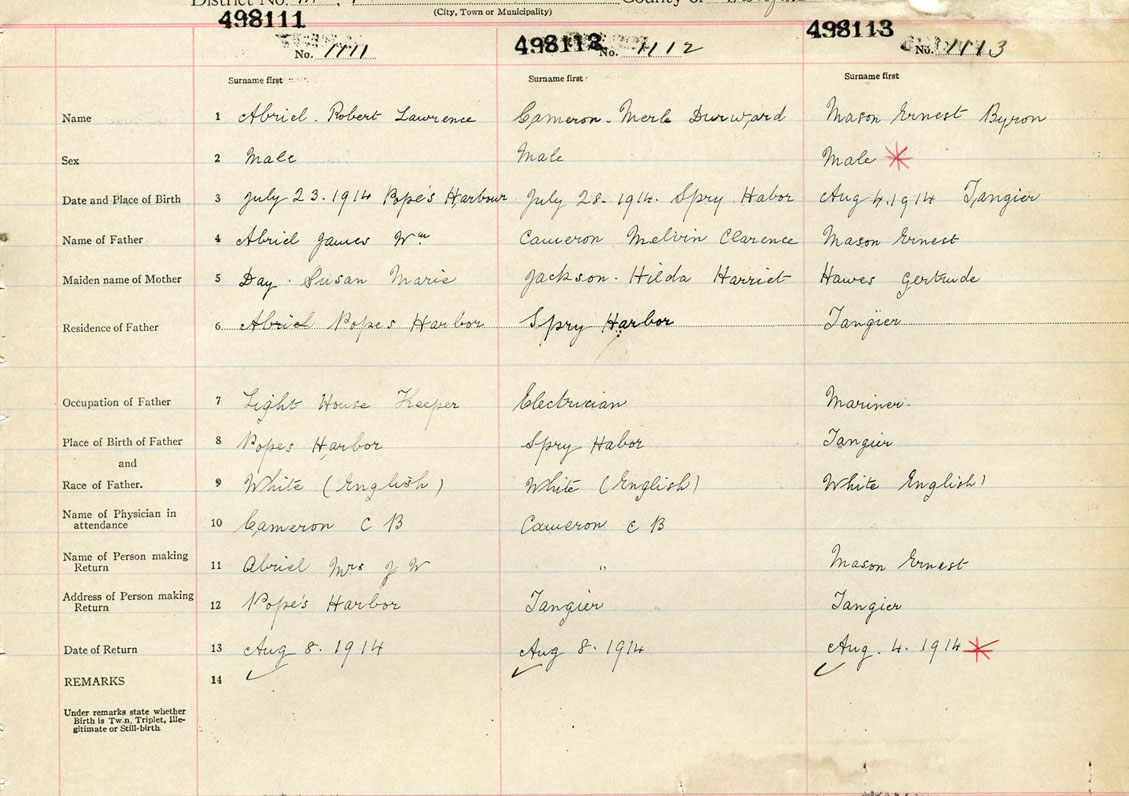 District No. County of
(City, Town or Municipality)
498111 498112 498113
No. 1111 No. 1112 No. 1113
Surname first Surname first Surname first
Name 1 Abriel. Robert Lawrence Cameron. Merle Durward Mason Ernest Byron
Sex 2 Male Male Male *
Date and Place of Birth 3 July 23. 1914 Pope's Harbour July 28. 1914. Spry Habor Aug 4. 1914 Tangier
Name of Father 4 Abriel James Wm Cameron Melvin Clarence Mason Ernest
Maiden name of Mother 5 Day. Susan Marie Jackson. Hilda Harriet Hawes Gertrude
Residence of Father 6 Abriel Popes Harbor Spry Harbor Tangier
Occupation of Father 7 Light House Keeper Electrician Mariner
Place of Birth of Father 8 Popes Harbor Spry Habor Tangier
and
Race of Father. 9 White (English) White (English) White English)
Name of Physician in
attendance 10 Cameron C B Cameron C B
Name of Person making
Return 11 Abriel Mrs J W " Mason Ernest
Address of Person making
Return 12 Pope's Harbor Tangier Tangier
Date of Return 13 Aug 8. 1914 Aug 8. 1914 Aug. 4. 1914 *
REMARKS 14
Under remarks state whether
Birth is Twin, Triplet, Ille-
gitimate or Still-birth